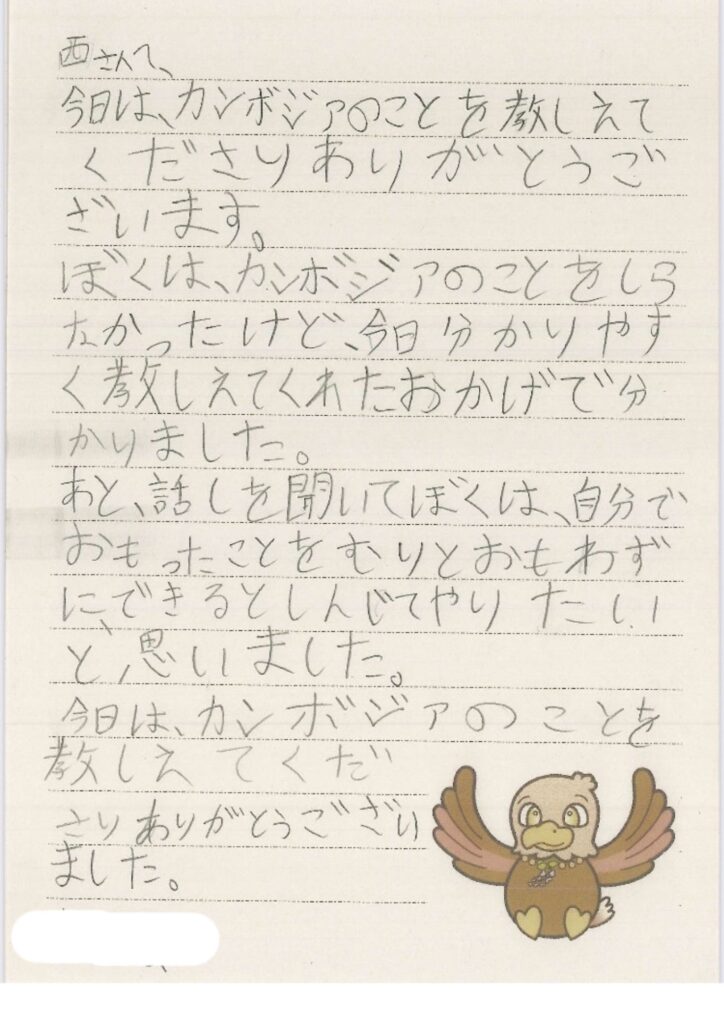 西さんへ、
今日は、カンボジアのことを教しえて
くださりありがとうご
ざいます。
ぼくは、カンボジアのことをしら
なかったけど、今日分かりやす
く教しえてくれたおかげで分
かりました。
あと、話しを開いてぼくは、自分で
おもったことをむりとおもわず
に、できるとしんじてやりたいい
と、思いました。
今日は、カンボジアのことを
教しえてくだ
さりありがとうござい
ました。